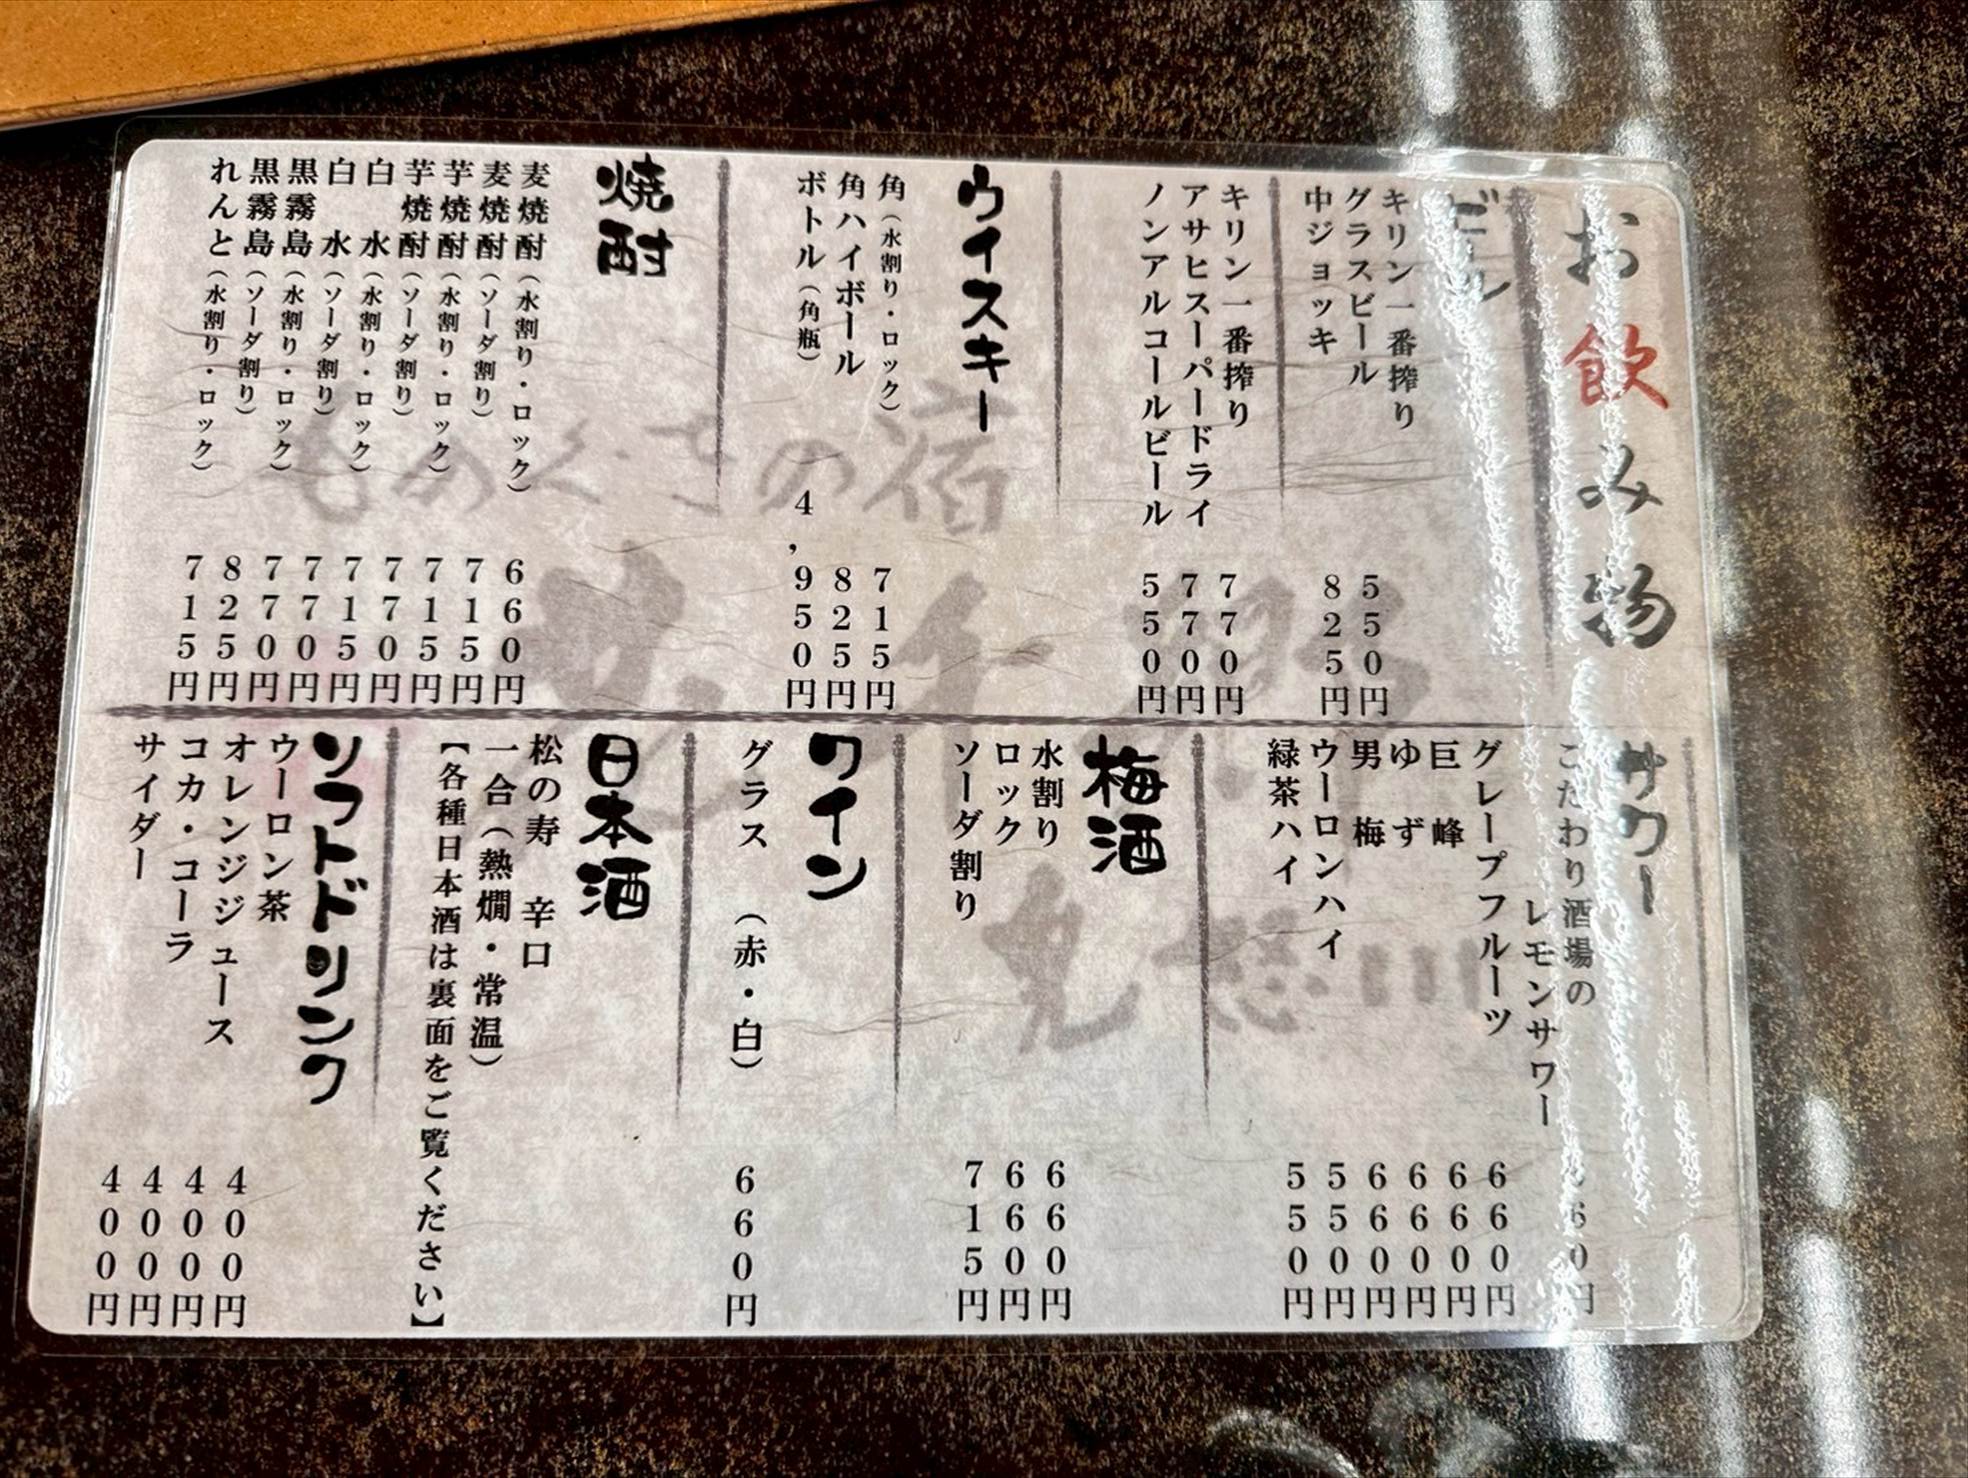 お飲み物
ビール
キリン一番搾り
グラスビール 550円
中ジョッキ 825円
キリン一番搾り 770円
アサヒスーパードライ 770円
ノンアルコールビール 550円
ウイスキー
角(水割り・ロック) 715円
角ハイボール 825円
ボトル(角瓶) 4,950円
焼酎
麦焼酎(水割り・ロック) 660円
麦焼酎(ソーダ割り) 715円
芋焼酎(水割り・ロック) 715円
芋焼酎(ソーダ割り) 770円
白水(水割り・ロック) 715円
白水(ソーダ割り) 770円
黒霧島(水割り・ロック) 770円
黒霧島(ソーダ割り) 825円
れんと(水割り・ロック) 715円
サワー
こだわり酒場の
レモンサワー 660円
グレープフルーツ 660円
巨峰 660円
ゆず 660円
男梅 660円
ウーロンハイ 550円
緑茶ハイ 550円
梅酒
水割り 660円
ロック 660円
ソーダ割り 715円
ワイン
グラス (赤・白) 660円
日本酒
松の寿 辛口
一合(熱燗・常温)
【各種日本酒は裏面をご覧ください】
ソフトドリンク
ウーロン茶 400円
オレンジジュース 400円
コカ・コーラ 400円
サイダー 400円